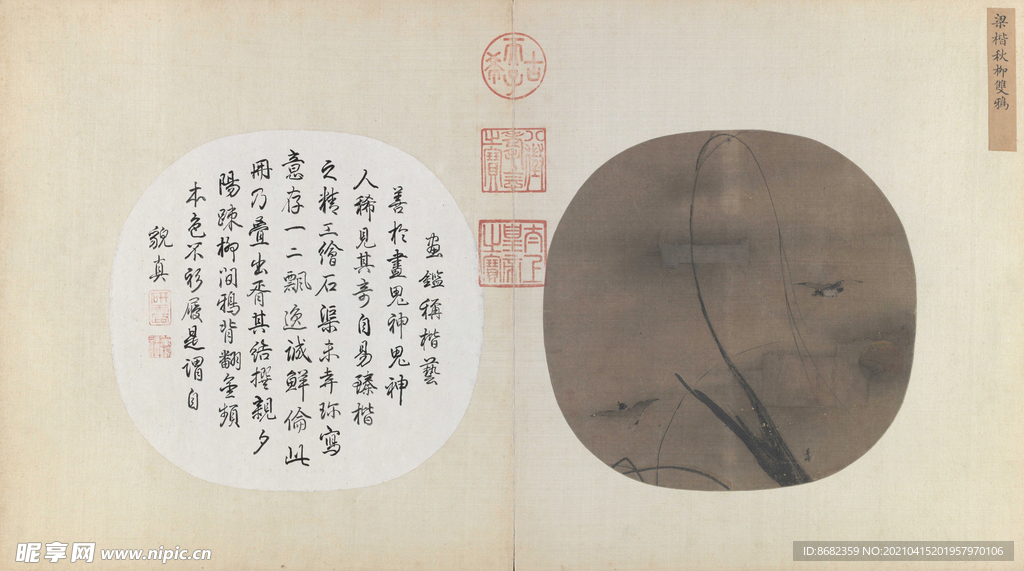 梁楷秋柳雙鴉
古
希
天子
八徵
耄念
之寶
太上
皇帝
之寶
畫鑑稱楷藝
善於畫鬼神鬼神
人稀見其奇自易臻楷
之精工繪石渠未弆珍寫
意存一二飄逸誠鮮倫此
冊乃疊出胥其結撰親夕
陽疎柳間鴉背翻金頻
本色不衫履是謂自
貌真
昵享网 www.nipic.cn
ID:8682359 NO:20210415201957970106